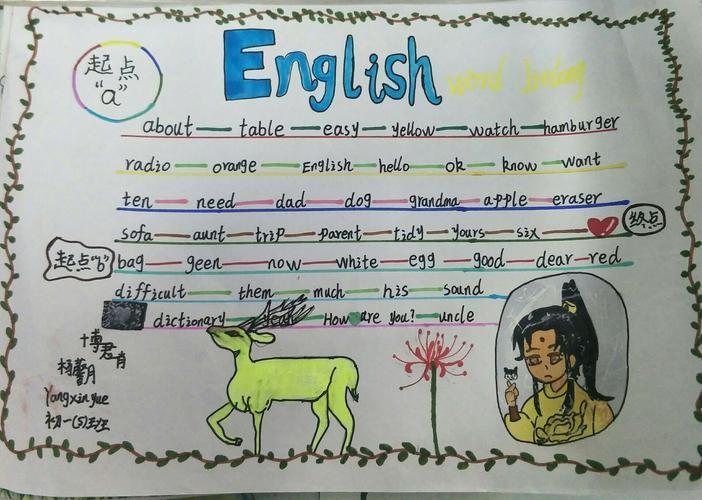 起点
"a"
English
word
about table easy yellow watch hamburger
radio orange English hello ok know want
ten need dad dog grandma apple eraser
sofa aunt trip parent tidy yours six
终点
起点"b"
bag geen now white egg good dear red
difficult them much his sound
dictionary How are you? uncle
Yangxinyue
初一(5)班